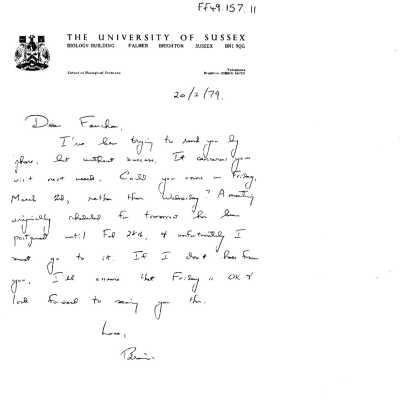 FF49.157.11
THE UNIVERSITY OF SUSSEX
BIOLOGY BUILDING FALMER BRIGHTON SUSSEX BN1 9QG
School of Biological Sciences
Telephone
Brighton
20/2/79.
Dear
I've been trying to send you by
phone, but without success. It concerns your
visit next week. Could you come on Friday,
March 2d, rather than Wednesday? A meeting
originally scheduled for tomorrow has been
postponed until Feb 28th, & unfortunately I
must go to it. If I don't hear from
you, I'll assume that Friday is OK &
look forward to seeing you then.
Love,